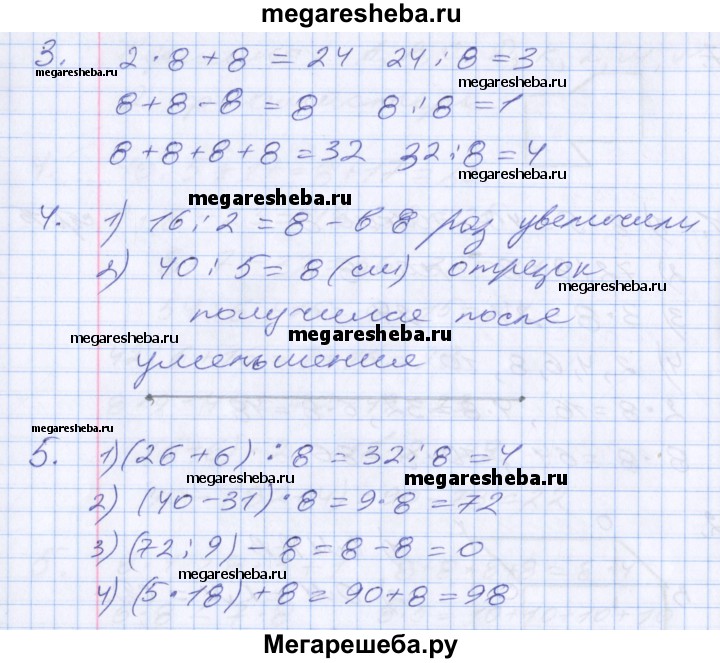 megaresheba.ru
3. 2 · 8 + 8 = 24 24 : 8 = 3
megaresheba.ru megaresheba.ru
8 + 8 - 8 = 8 8 : 8 = 1
8 + 8 + 8 + 8 = 32 32 : 8 = 4
megaresheba.ru
4. 1) 16 : 2 = 8 - в 8 раз увеличили
2) 40 : 5 = 8 (см) отрезок
megaresheba.ru
получился после
megaresheba.ru megaresheba.ru
уменьшения
megaresheba.ru
5. 1) (26 + 6) : 8 = 32 : 8 = 4
megaresheba.ru
2) (40 - 31) · 8 = 9 · 8 = 72
3) (72 : 9) - 8 = 8 - 8 = 0
megaresheba.ru
4) (5 · 18) + 8 = 90 + 8 = 98
Мегарешеба.ру